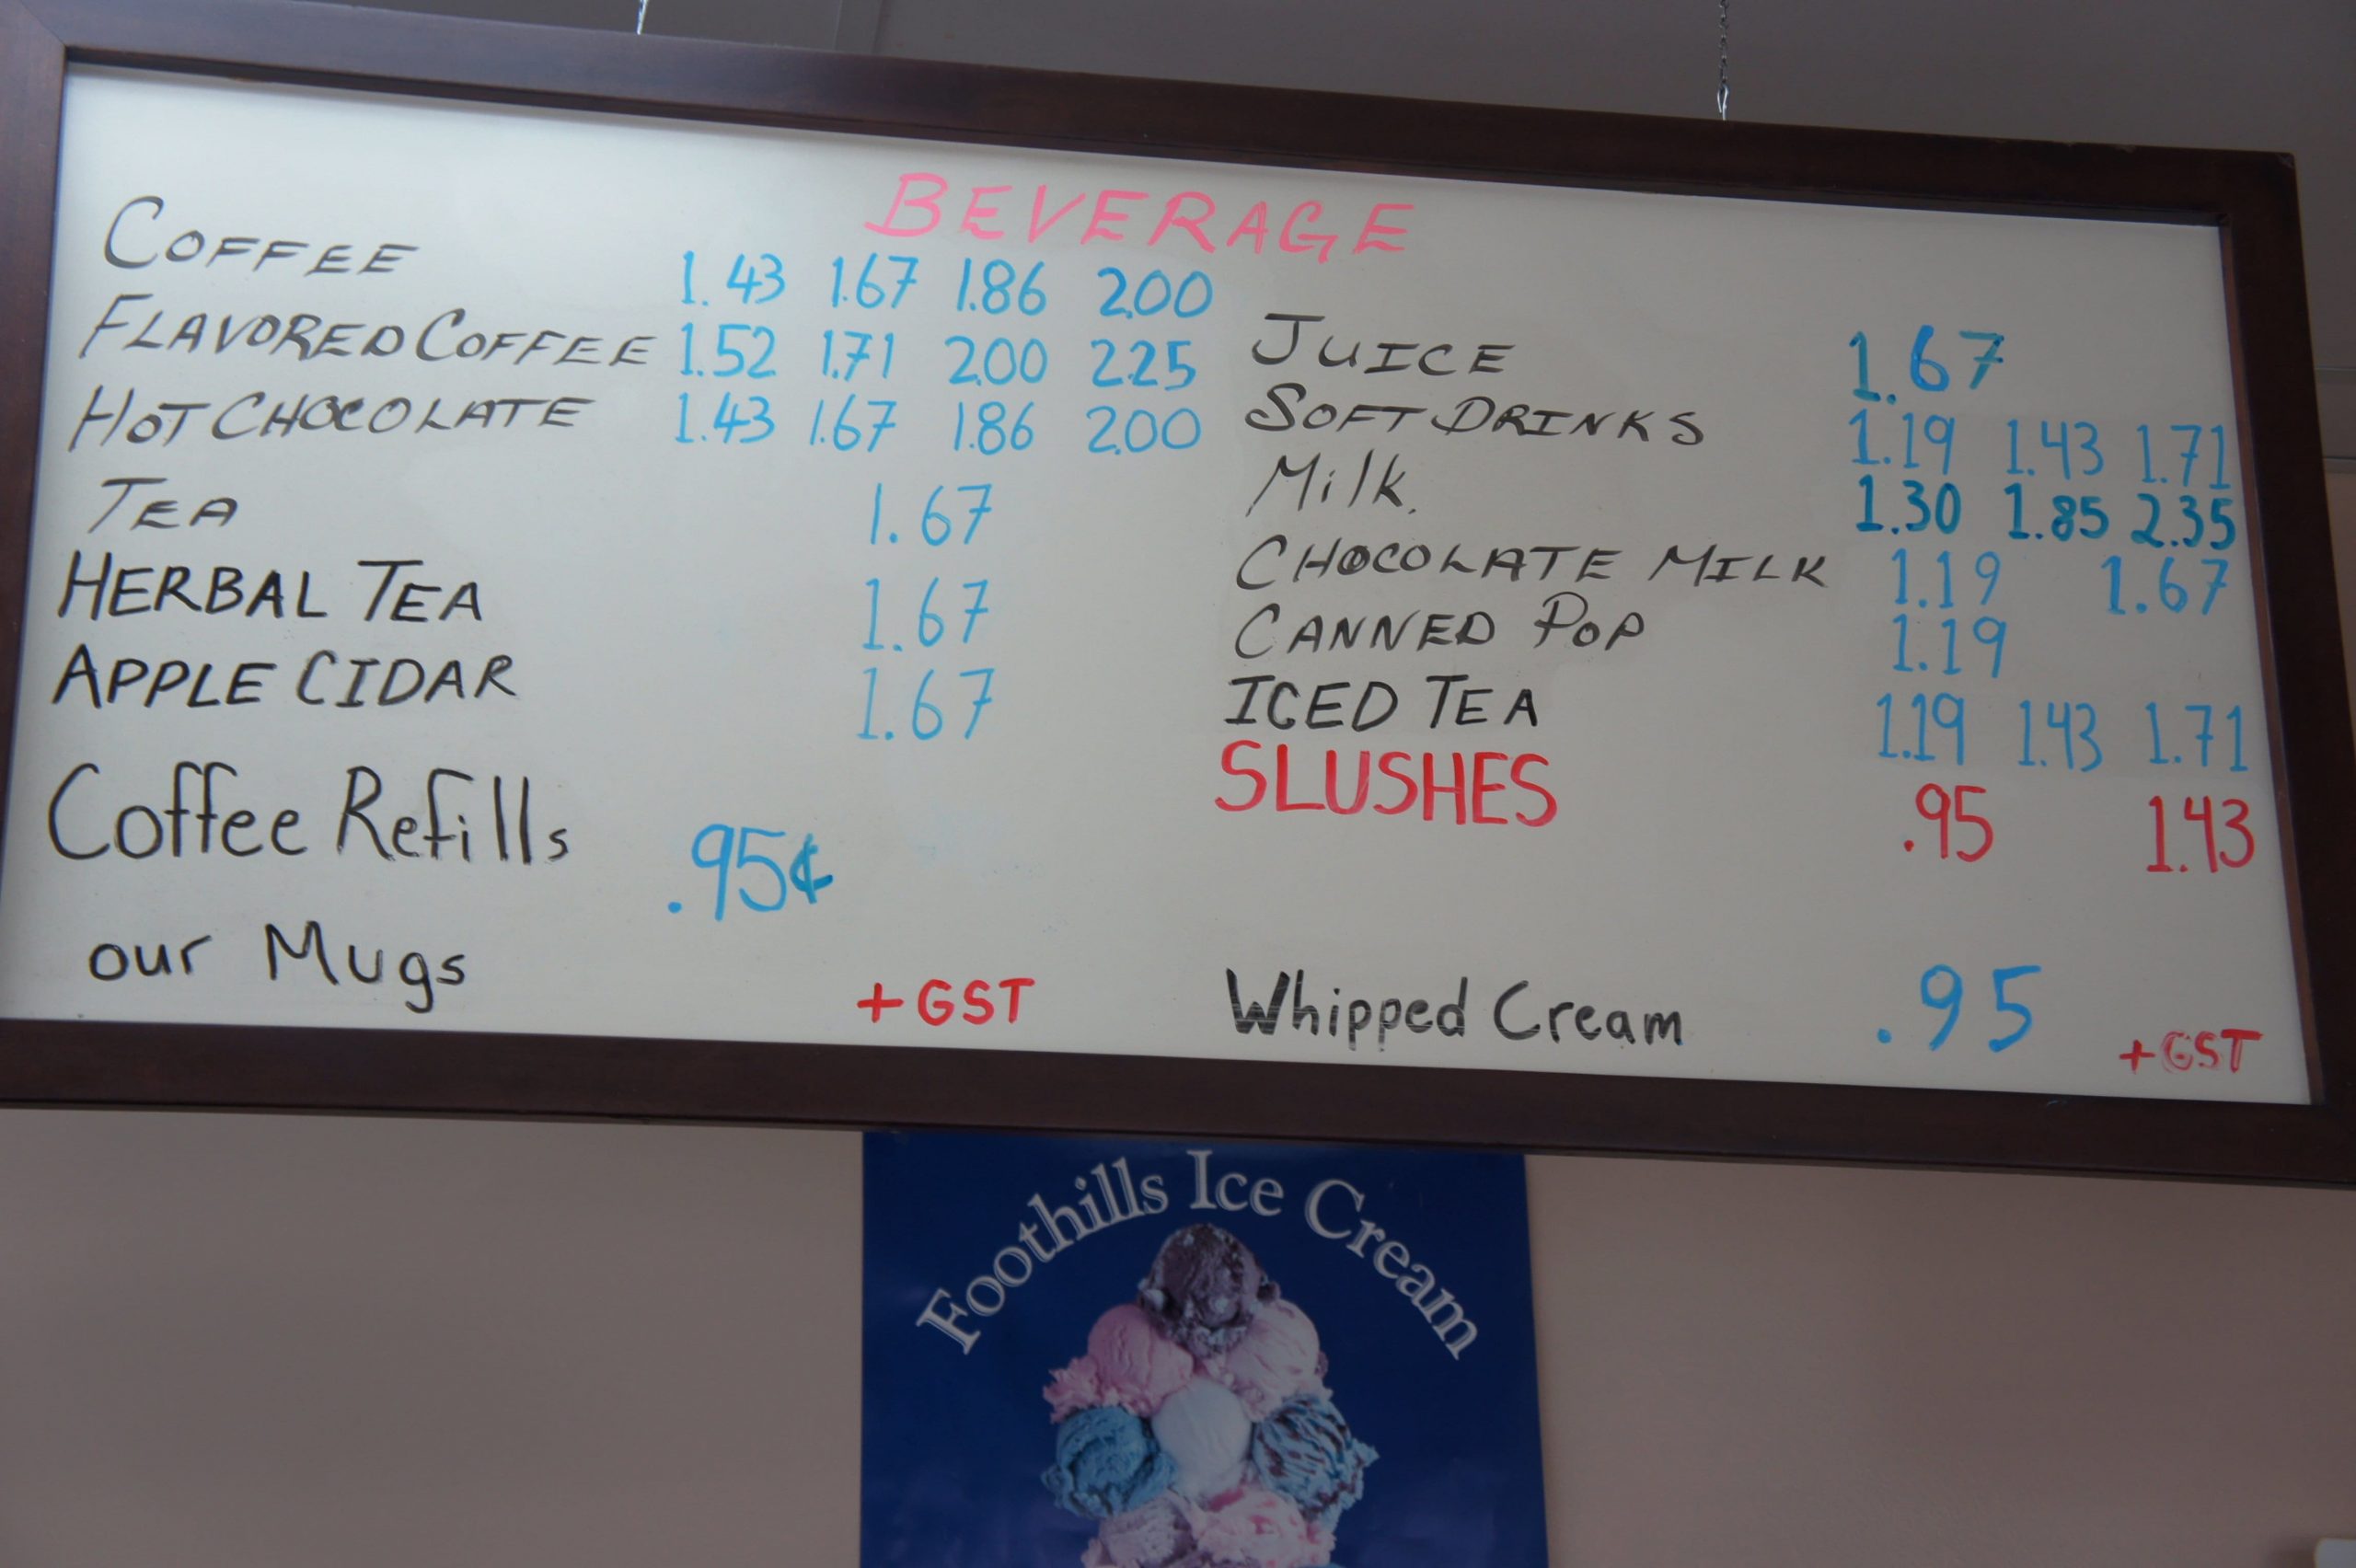 BEVERAGE
COFFEE 1.43 1.67 1.86 2.00
FLAVORED COFFEE 1.52 1.71 2.00 2.25
HOT CHOCOLATE 1.43 1.67 1.86 2.00
TEA 1.67
HERBAL TEA 1.67
APPLE CIDAR 1.67
Coffee Refills .95¢
our Mugs
+GST
JUICE 1.67
SOFT DRINKS 1.19 1.43 1.71
Milk. 1.30 1.85 2.35
CHOCOLATE MILK 1.19 1.67
CANNED POP 1.19
ICED TEA 1.19 1.43 1.71
SLUSHES .95 1.43
Whipped Cream .95
+GST
Foothills Ice Cream